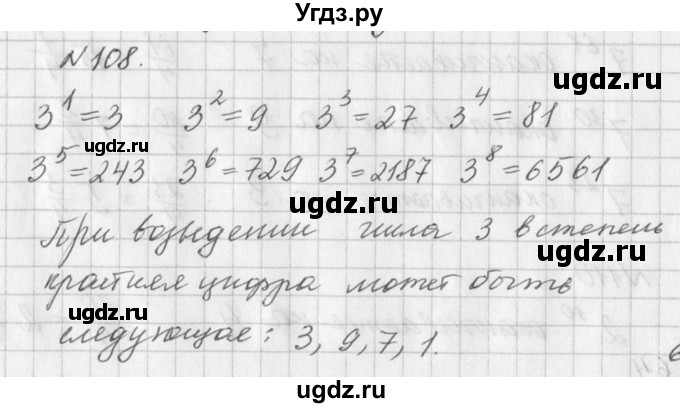 Угдз.ру
N108.
3^1=3 3^2=9 3^3=27 3^4=81
3^5=243 3^6=729 3^7=2187 3^8=6561
При возведении числа 3 в степень
крайняя цифра может быть
следующая: 3, 9, 7, 1.
ugdz.ru
ugdz.ru
ugdz.ru
ugdz.ru
ugdz.ru
ugdz.ru
ugdz.ru
ugdz.ru